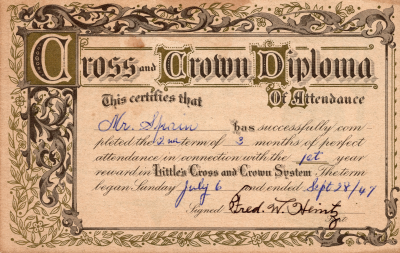 Cross and Crown Diploma
This certifies that Of Attendance
Mr. Spain has successfully com-
pleted the 2nd term of 3 months of perfect
attendance in connection with the 1st year
reward in Little's Cross and Crown System. The term
began Sunday July 6 and ended Sept 28/47
Signed Fred. W. Hintz